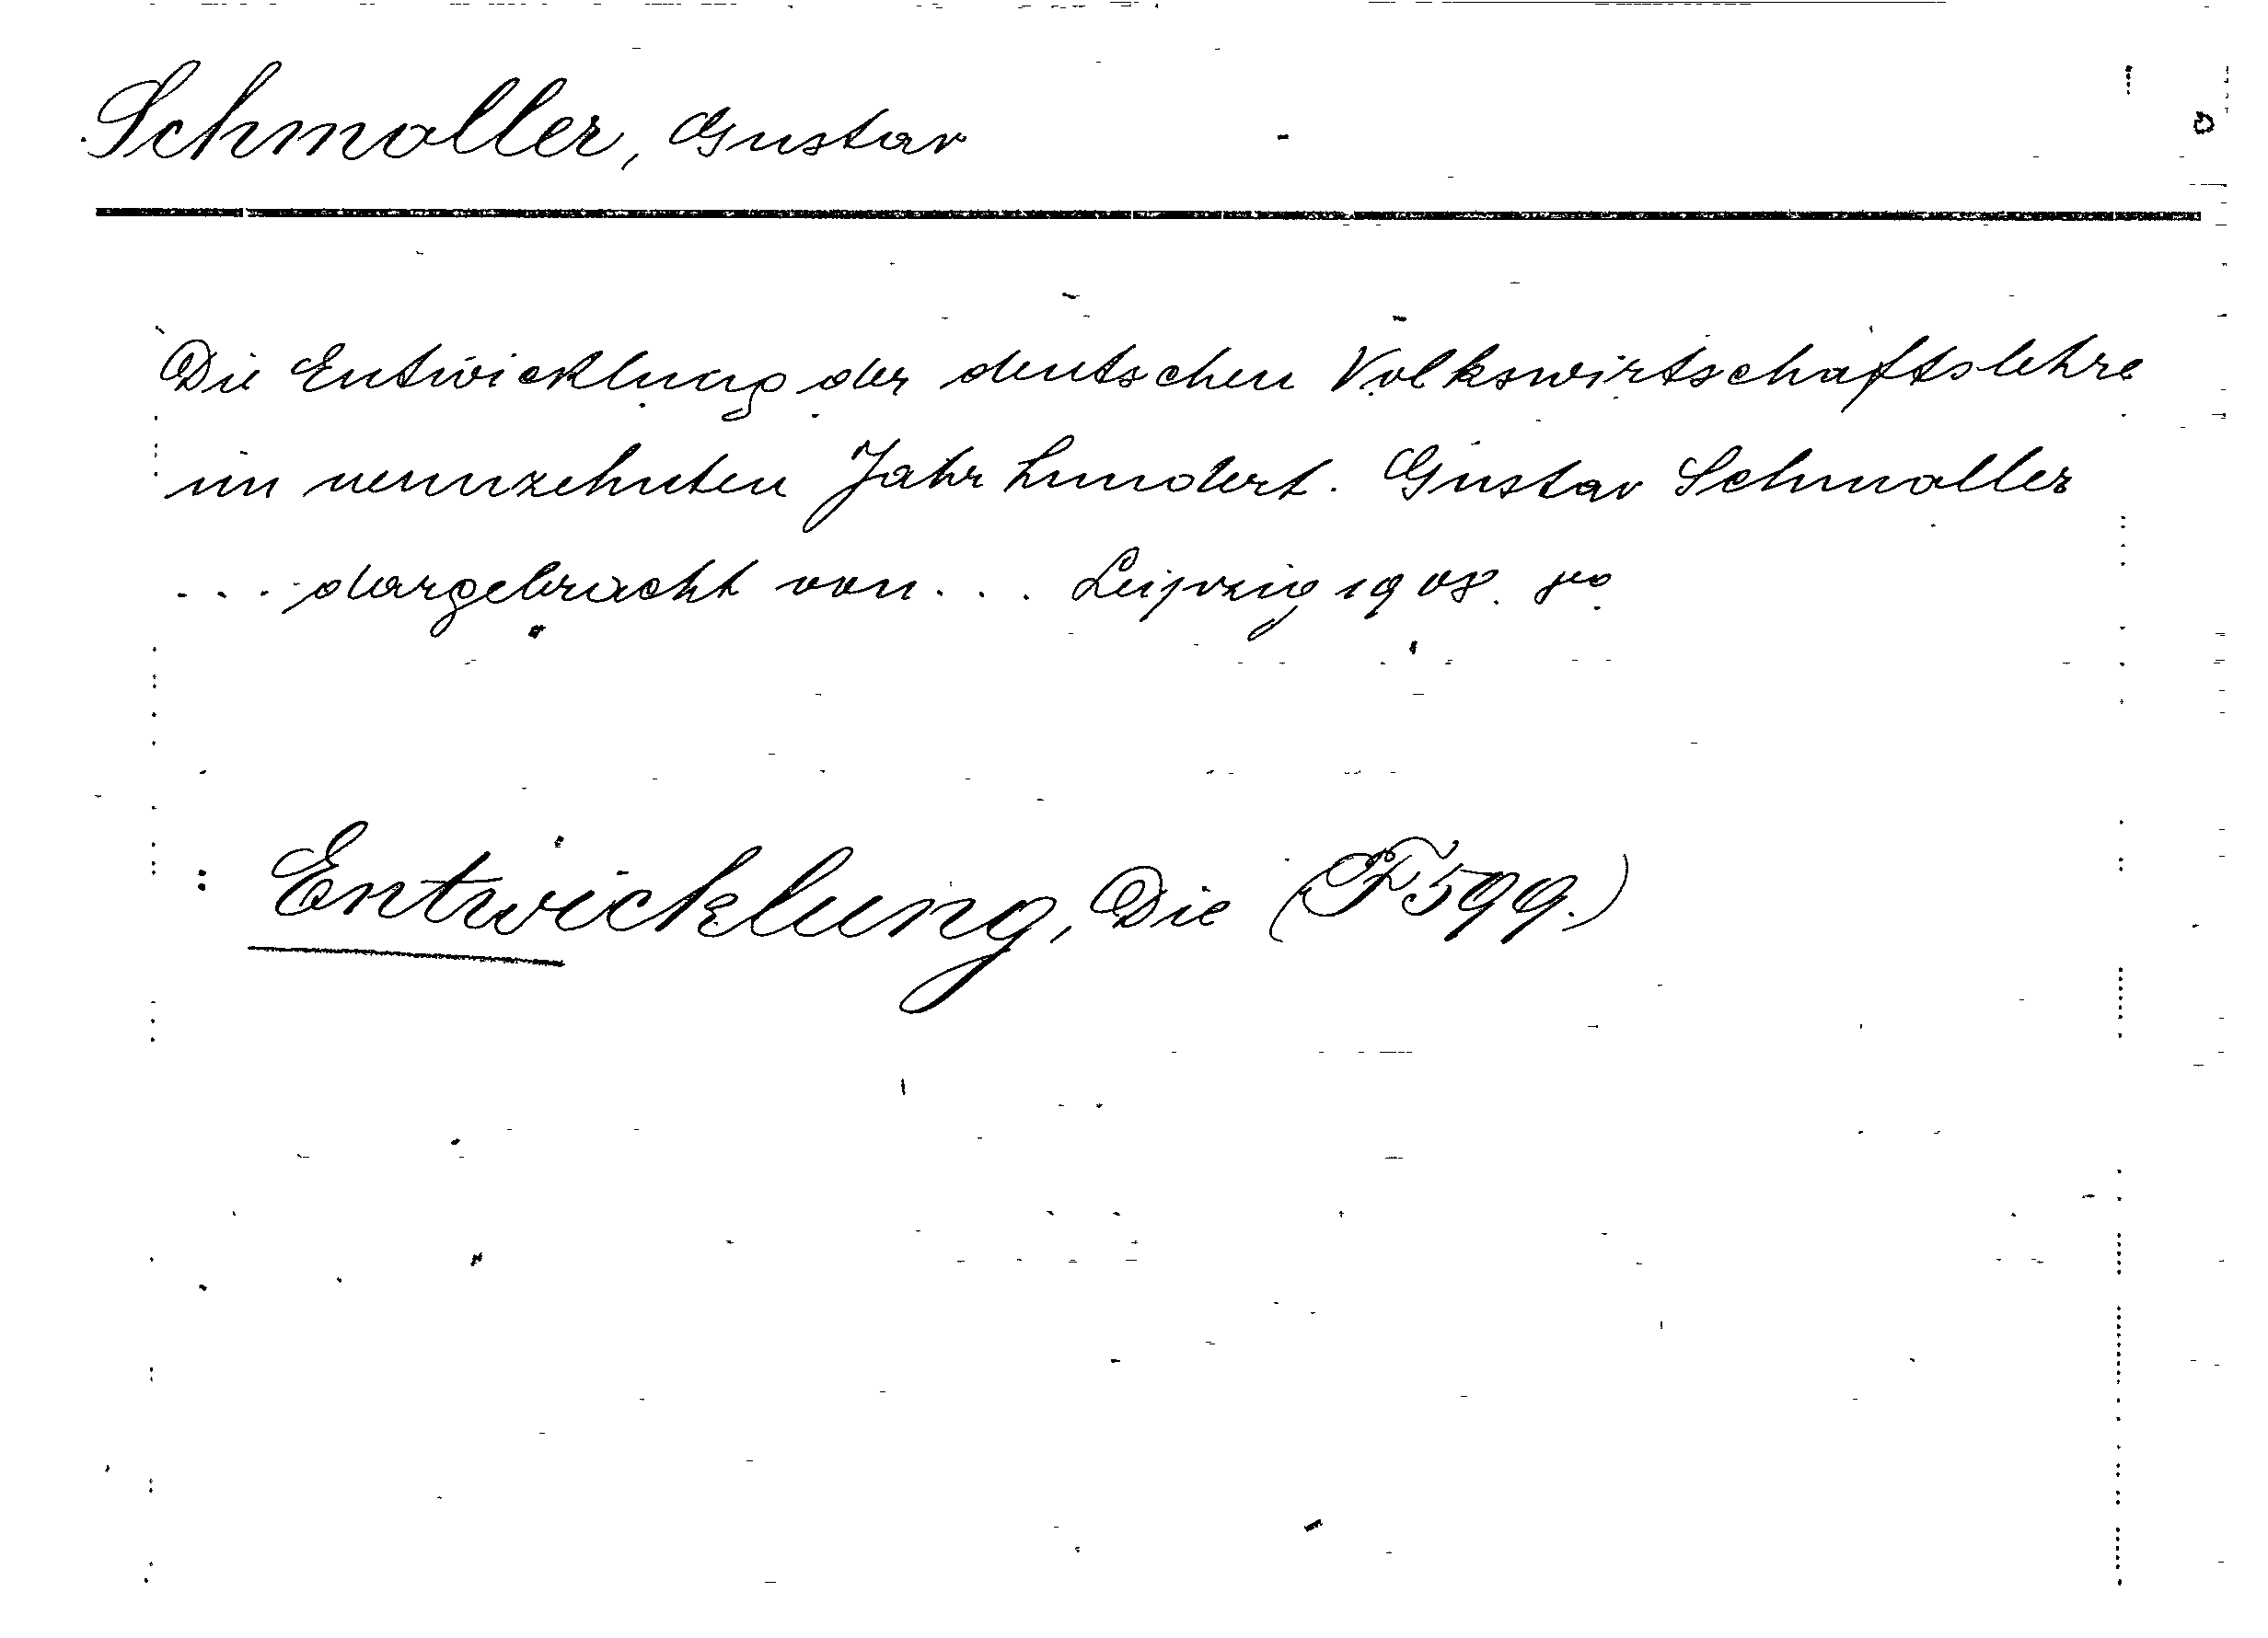 Schmoller, Gustav
Die Entwicklung der deutschen Volkswirtschaftslehre
im neunzehnten Jahrhundert. Gustav Schmoller
... dargebracht von... Leipzig 1908. 8º
Entwicklung, Die (F 599.)